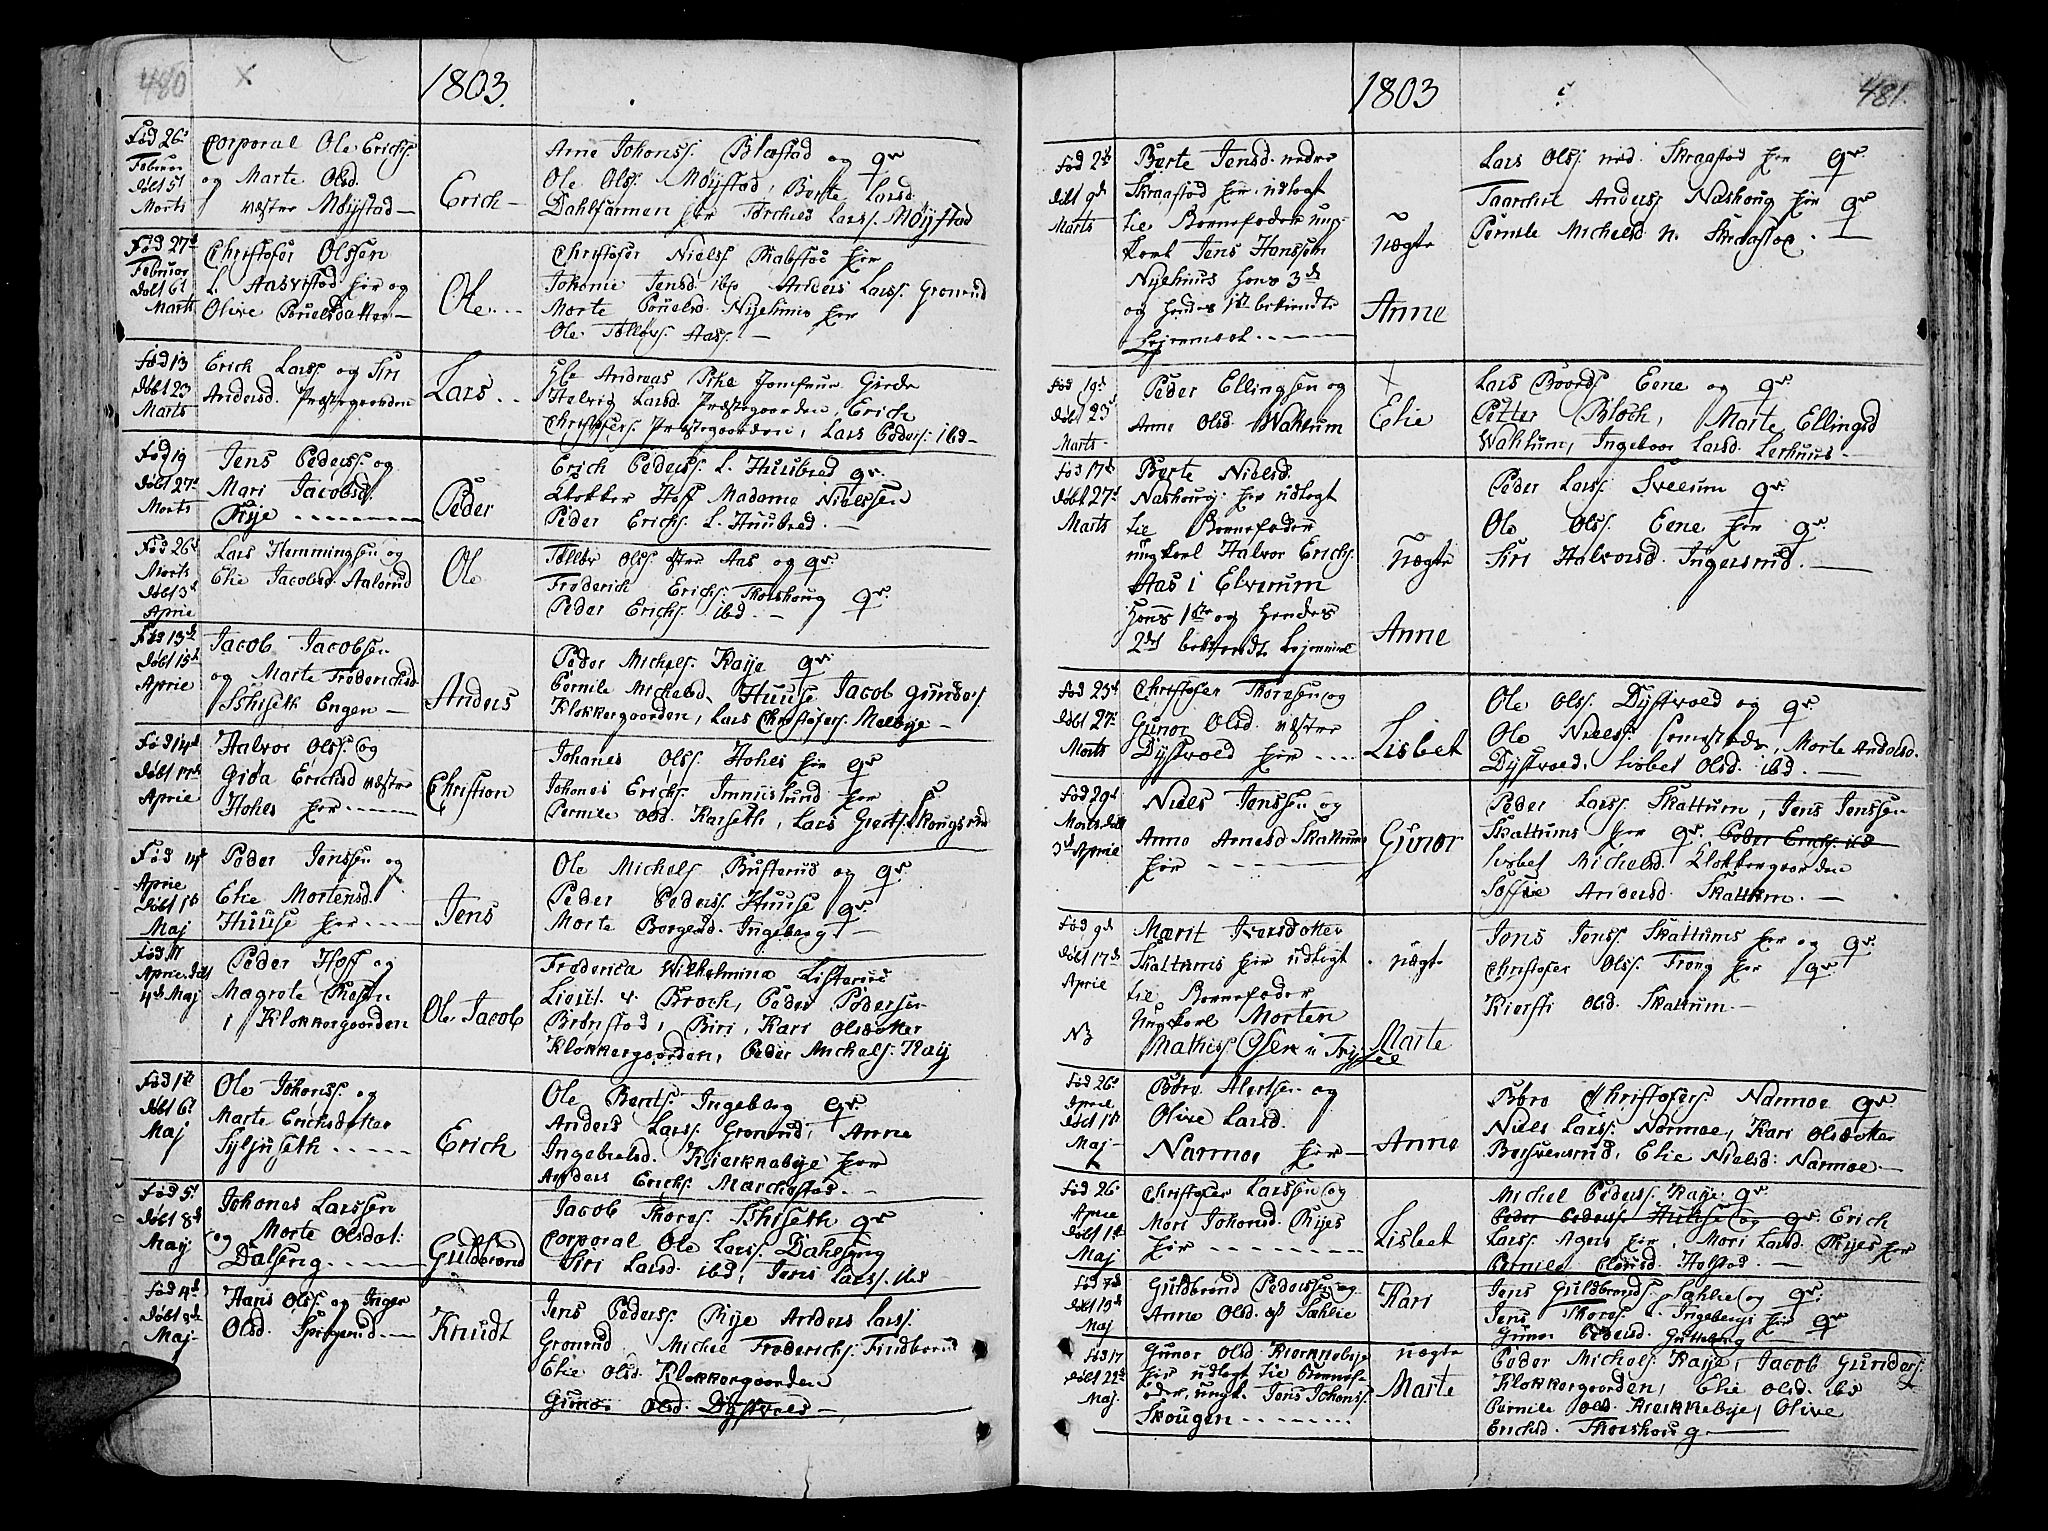 480
1803.
Fød 26
Februar
døbt 5t
Marts
Corporal Ole Erichs.
og Marte Olsd.
væster Møystad —
Erich —
Arne Johanss. Blæstad og qv.
Ole Olss. Møystad, Berte Larsd.
Dahlfarmen her Torchies Larss. Møystad
Fød 27d
Februar
døbt 6t
Marts
Christofer Olssen
L. Aasvistad her og
Olive Pouelsdatter —
Ole —
Christofer Nielss. Rabstad her
Johanne Jensd. ibd Anders Larss. Grønrud
Marte Pouelsd. Nyehuus her
Ole Tolløvs. Aass. —
Fød 13
døbt 23
Marts
Erich Larss. og Siri
Andersd. Præstegaarden
Lars —
Andreas Pihe Jomfrue Giørde
Helvig Larsd. Præstegaarden, Erich
Christofers. Præstegaarden, Lars Peders. ibd —
Fød 19
døbt 27d
Marts
Jens Pederss. og
Mari Jacobsd.
Rye —
Peder
Erich Pederss. L. Huusbred qv.
Klokker Hoff Madame Nielssen
Peder Erichs. L. Huusbred. —
Fød 26d
Marts
døbt 3d
Aprie
Lars Hemmingsen og
Elie Jacobsd. Aalsrud
Ole
Tolløv Olss. øster Aas og qv.
Frederich Erichs. Thorshoug qv.
Peder Erichs. ibd. —
Fød 13d
døbt 15d
Aprie
Jacob Jacobsen
og Marte Frederichsd.
Sthiseth Engen —
Anders
Peder Michels. Raye qv.
Pernile Michelsd. Huuse Jacob Gunders.
Klokkergaarden, Lars Christofers. Melbye —
Fød 14d
døbt 17d
Aprie
Halvor Olss. og
Gida Erichsd væster
Hohes her —
Christian
Johanes Olss. Hohes her qv.
Johanes Erichs. Imrislund her
Pernile Olsd. Karseth, Lars Giertss. Skougsrud
Fød 14d
Aprie
døbt 1st
Maj
Peder Jenssen og
Elie Mortensd.
Huuse her —
Jens
Ole Michels. Bufterud og qv.
Peder Pederss. Huuse qv.
Marte Borgersd. Ingeberg —
Fød 17
Aprie døbt
4d Maj
Peder Hoff og
Magrete Olsen
i Klokkergaarden
Ole Jacob
Frederica Wilhelmina
Lieut. v. Broch, Peder Pedersen
Brønstad, Biri, Kari Olsdatter
Klokkergaarden, Peder Michels. Raye
Fød 1st
døbt 6t
Maj
Ole Johanss. og
Marte Erichsdatter
Syljuseth —
Erich
Ole Berntss. Ingeberg qv.
Anders Larss. Grønrud, Anne
Ingebretsd. Kierknebye her
Anders Erichs. Marchestad. —
Fød 5t
døbt 8d
Maij
Johanes Larssen
og Marte Olsdat:
Dalseng. —
Guldbrand
Jacob Thores. Sthiseth qv
Corporal Ole Larss. Dahlseng
Siri Larsd. ibd, Jens Larss. ibd —
Fød 4d
døbt 8d
Maj
Hans Olss. og Inger
Olsd. Sperrud —
Knudt
Jens Pederss. Rye Anders Larss.
Grønrud Michel Frederichs. Findborud
Elie Olsd. Klokkergaarden
Gunor Olsd. Dystvold —
1803
481.
Fød 2d
døbt 9d
Marts
Berte Jensd. nedre
Skraastad her, udlagt
tie Barnefader ung-
karl Jens Hanssøn
Nyehuus hans 3d
og hendes 1st bekiendte
Lejermaal. —
nægte
Anne
Lars Olss. ned. Skraastad her qv.
Taarchil Anders. Nashoug her qv
Pernile Michelsd n. Skraastad. —
Fød 19d
døbt 23d
Marts
Peder Ellingsen og
Anne Olsd. Wahlum
Elie
Lars Boords. Eene og qv.
Petter Bloch, Marte Ellingsd
Wahlum, Ingeboor Larsd. Lerhuus —
Fød 17d
døbt 27d
Marts
Berte Nielsd.
Nashoug, her udlagt
tie Barnefader
ungkarl Halvor Erichs.
Aas i Elverum
hans 1ste og hendes
2det bekiendte Lejermaal
nægte
Anne
Peder Larss. Sveeum qv.
Ole Olss. Eene her qv.
Siri Halvorsd. Ingersrud. —
Fød 23d
døbt 27d
Marts
Christofer Thoresen og
Gunor Olsd. væster
Dystvold her —
Lisbet
Ole Olss. Dystvold og qv.
Ole Nielss. Semestads, Marte Andersd.
Dystvold, Lisbet Olsd. ibd. —
Fød 29d
Marts døbt
3d Aprie
Niels Jenssen og
Anne Arnesd Skattum
her —
Gunor
Peder Larss. Skattum, Jens Jenssen
Skattums her qv. Peder Erichs. ibd
Lisbet Michelsd. Klokkergaarden
Soffie Andersd. Skattum. —
Fød 9d
døbt 17d
Aprie
NB
Marit Iversdatter
Skattums her udlagt
tie Barnefader
Ungkarl Morten
Mathiss. Osen i Trysill
nægte
Marte
Jens Jenss. Skattums her og qv.
Christofer Olss. Frong her qv.
Kiersti Olsd. Skattum —
Fød 26d
Aprie
døbt 1st
Maj —
Børe Alertsen og
Olive Larsd.
Narmoe her —
Anne
Børe Christofers. Narmoe qv.
Niels Larss. Narmoe, Kari Olsdatter
Bersvensrud, Elie Nielsd: Narmoe. —
Fød 26
Aprie
døbt 1st
Maj
Christofer Larssen og
Mari Johansd. Ryes
her —
Lisbet
Michel Pederss. Raye qv.
Peder Pederss. Huuse og qv. Erich
Larss. Ager her, Mari Larsd. Ryes her
Pernile Clausd. Holstad. —
Fød 7d
døbt 19d
Maj
Guldbrand Pederssen og
Anne Olsd. Sælie
Kari
Jens Guldbrands. Sælie og qv.
Jens Thoress. L. Ingebergs her qv
Gunor Pedersd. Gutteberg
Fød 17
døbt 22d
Maj.
Gunor Olsd. Kierknebye
her udlagt tie Barnef-
ader, ungk. Jens Johans.
Skougen —
nægte
Marte
Peder Michels. Raye, Jacob Gunders.
Klokkergaarden, Elie Olsd. ibd
Pernile Olsd. Kierknebye, Olive
Erichsd. Thorshoug —